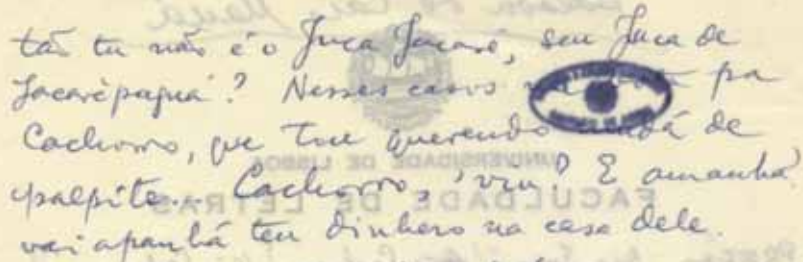 tão tu não é o Juca Jacaré, seu Juca de
Jacarèpaguá? Nesses casos pa
Cachorro, que tou querendo mudá de
palpite... Cachorro, 'viu? E amanhã
vai apanhá teu dinhero na casa dele.
UNIVERSIDADE DE LISBOA
FACULDADE DE LETRAS